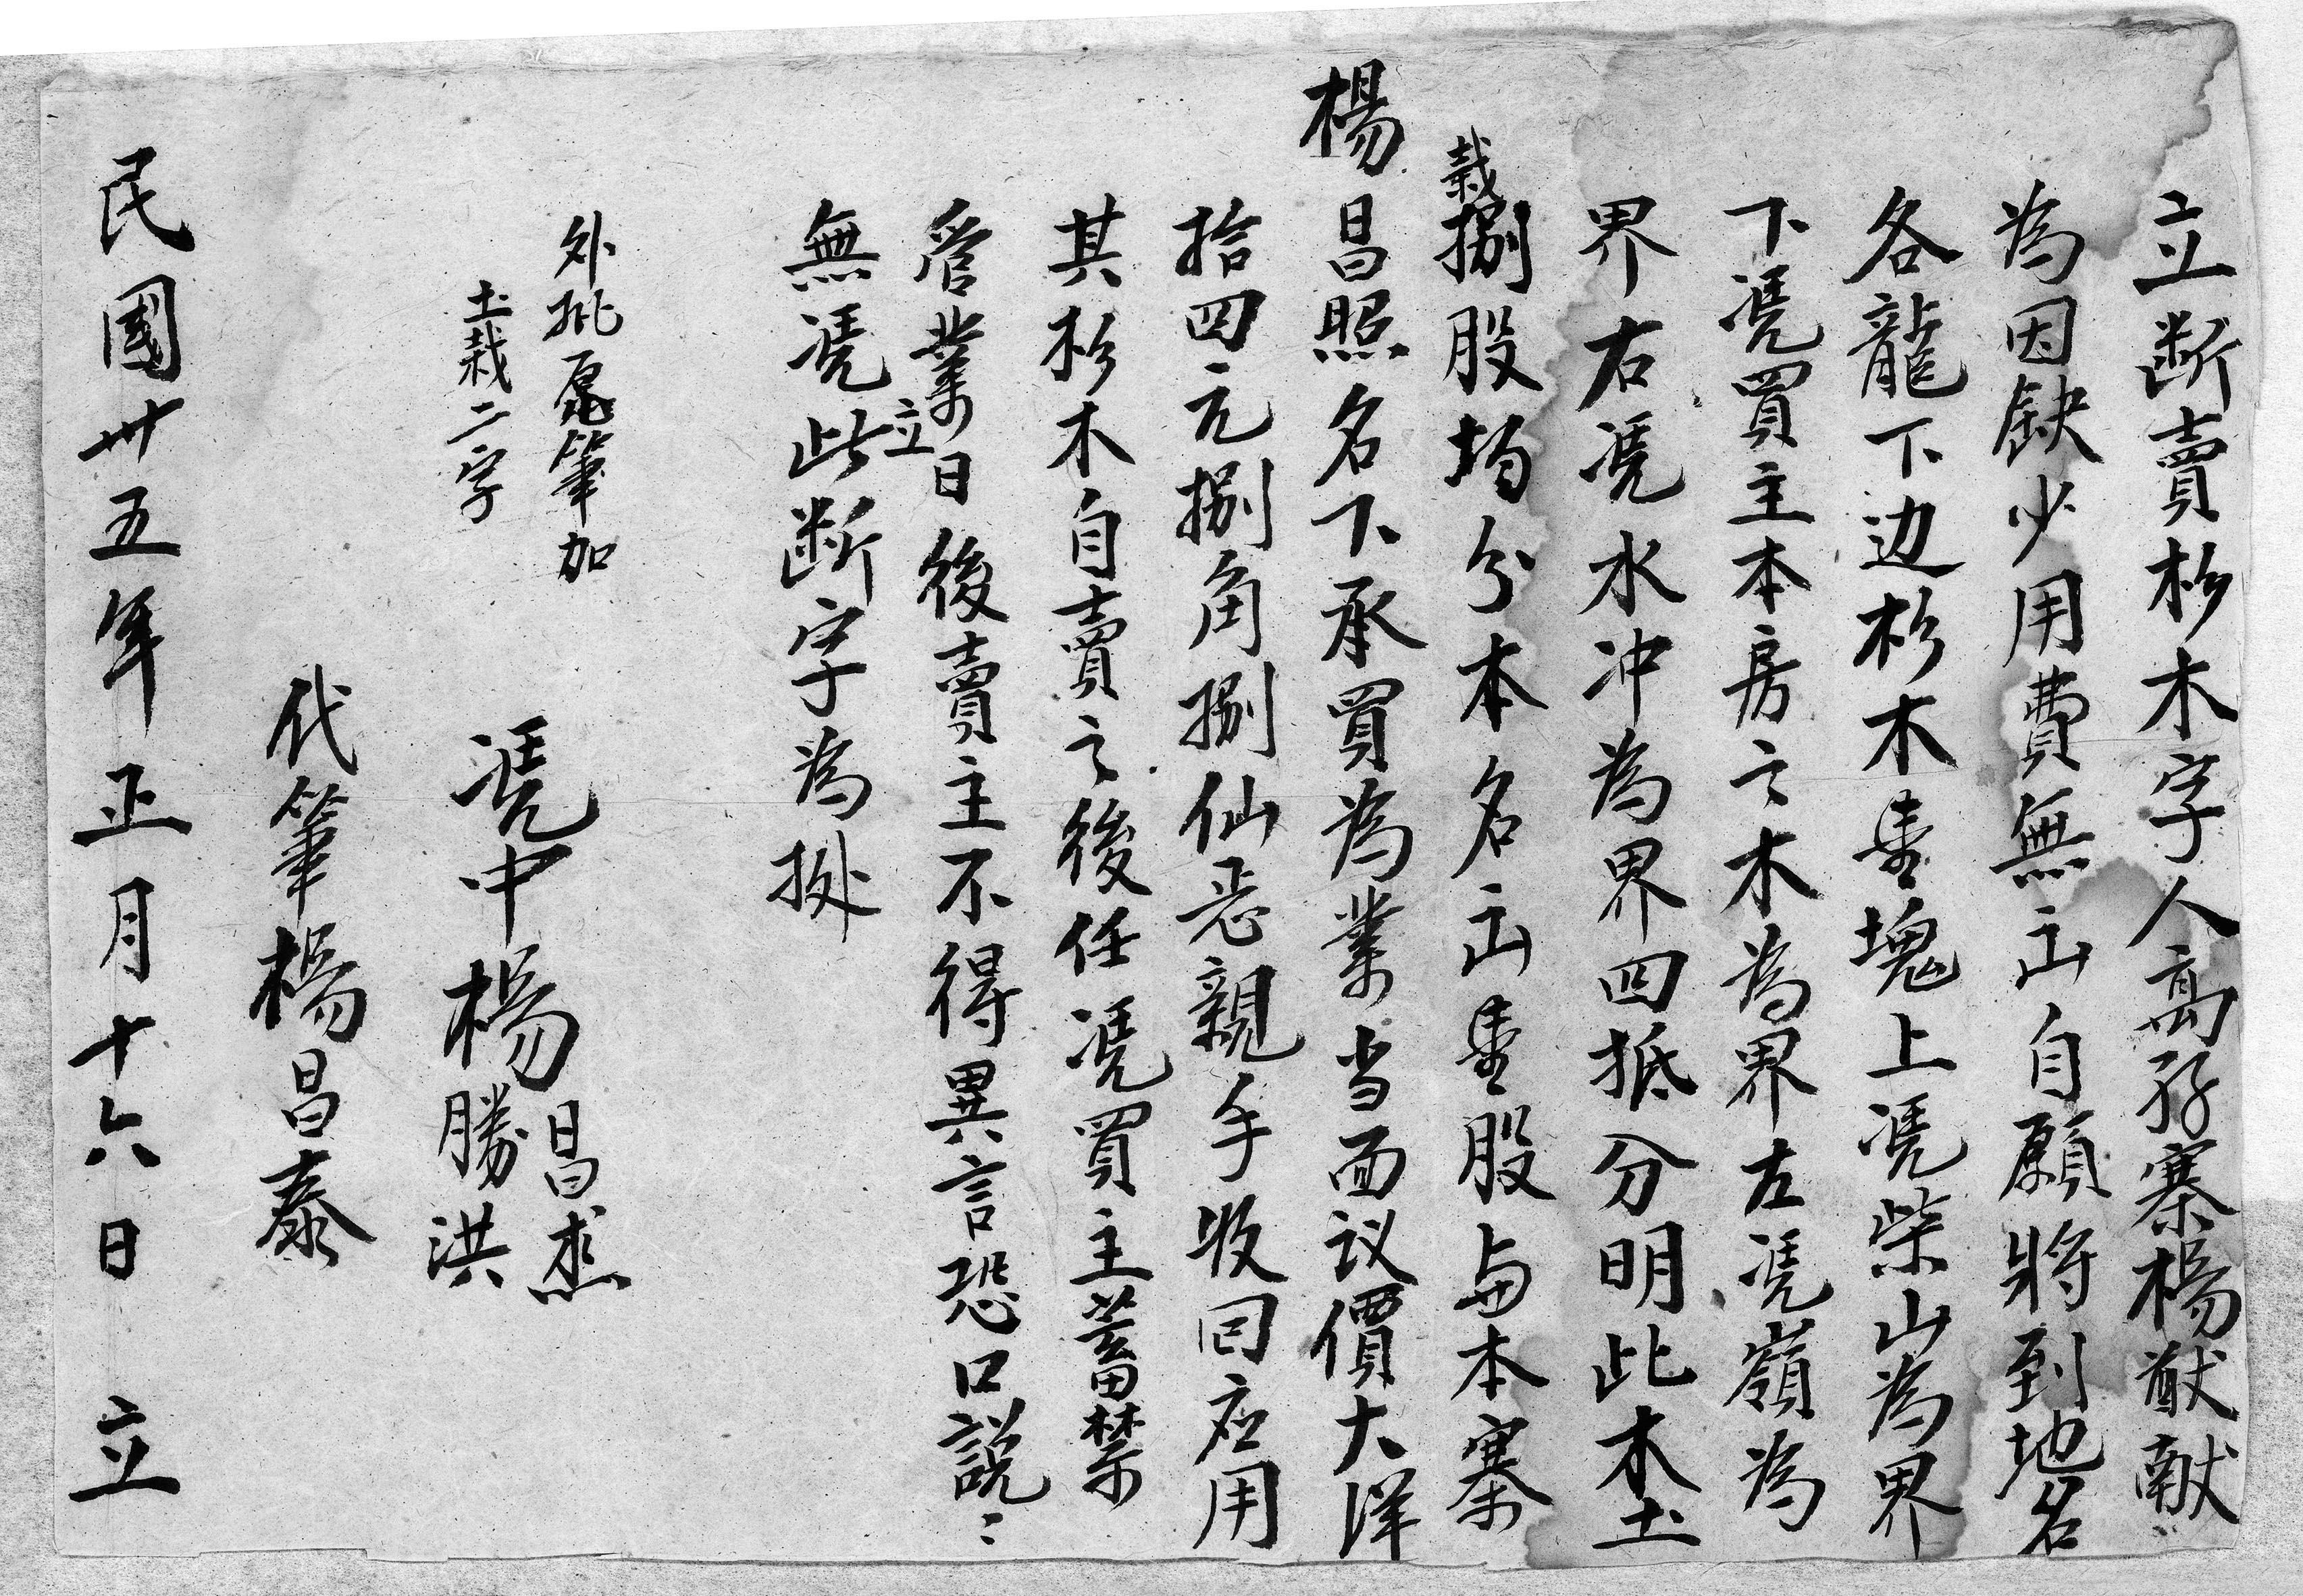 立断賣杉木字人高孖寨楊猷献
為因缺少用費無出自願將到地名
各龍下边杉木壹塊上凴柴山為界
下凴買主本房之木為界左凴嶺為
界右凴水冲為界四抵分明此木土
栽捌股均分本名出壹股与本寨
楊昌照名下承買為業当面议價大洋
拾四元捌角捌仙親手收囘应用
其杉木自賣之後任凴買主蓄禁
管業立日後賣主不得異言恐口説〻
無凴此断字為㨿
外批筆加
土栽二字
凴中楊昌
勝洪
代筆楊昌泰
民國卅五年正月十六日 立